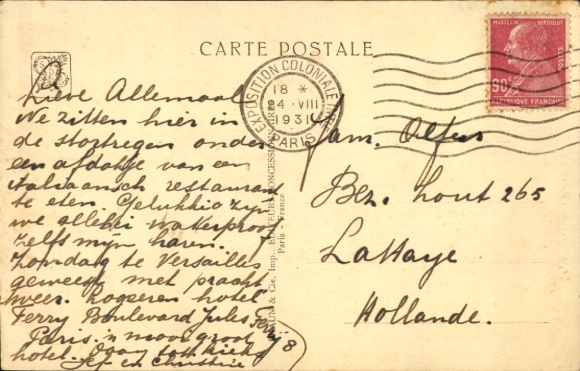 CARTE POSTALE
Lieve Allemaal
We zitten hier in
de stortregen onder
een afdakje van een
italiaansch restaurant
te eten. Gelukkig zijn
we allebei waterproof
zelfs mijn haren.
Zondag te Versailles
geweest met pracht
weer. Logeeren hotel
Ferry Boulevard Jules Ferry 8
Paris 'n mooi groot
hotel. tot kiek
Jef en Christine
BRAUN & Cie, Imp. EDITEURS-CONCESSIONNAIRES
Paris - France
EXPOSITION COLONIALE INT
PARIS
18 *
24 · VIII
1931
MARCELIN BERTHELOT
POSTES
90c
REPUBLIQUE FRANCAISE
Fam. Olfers
Bez. hout 265
La Haye
Hollande.